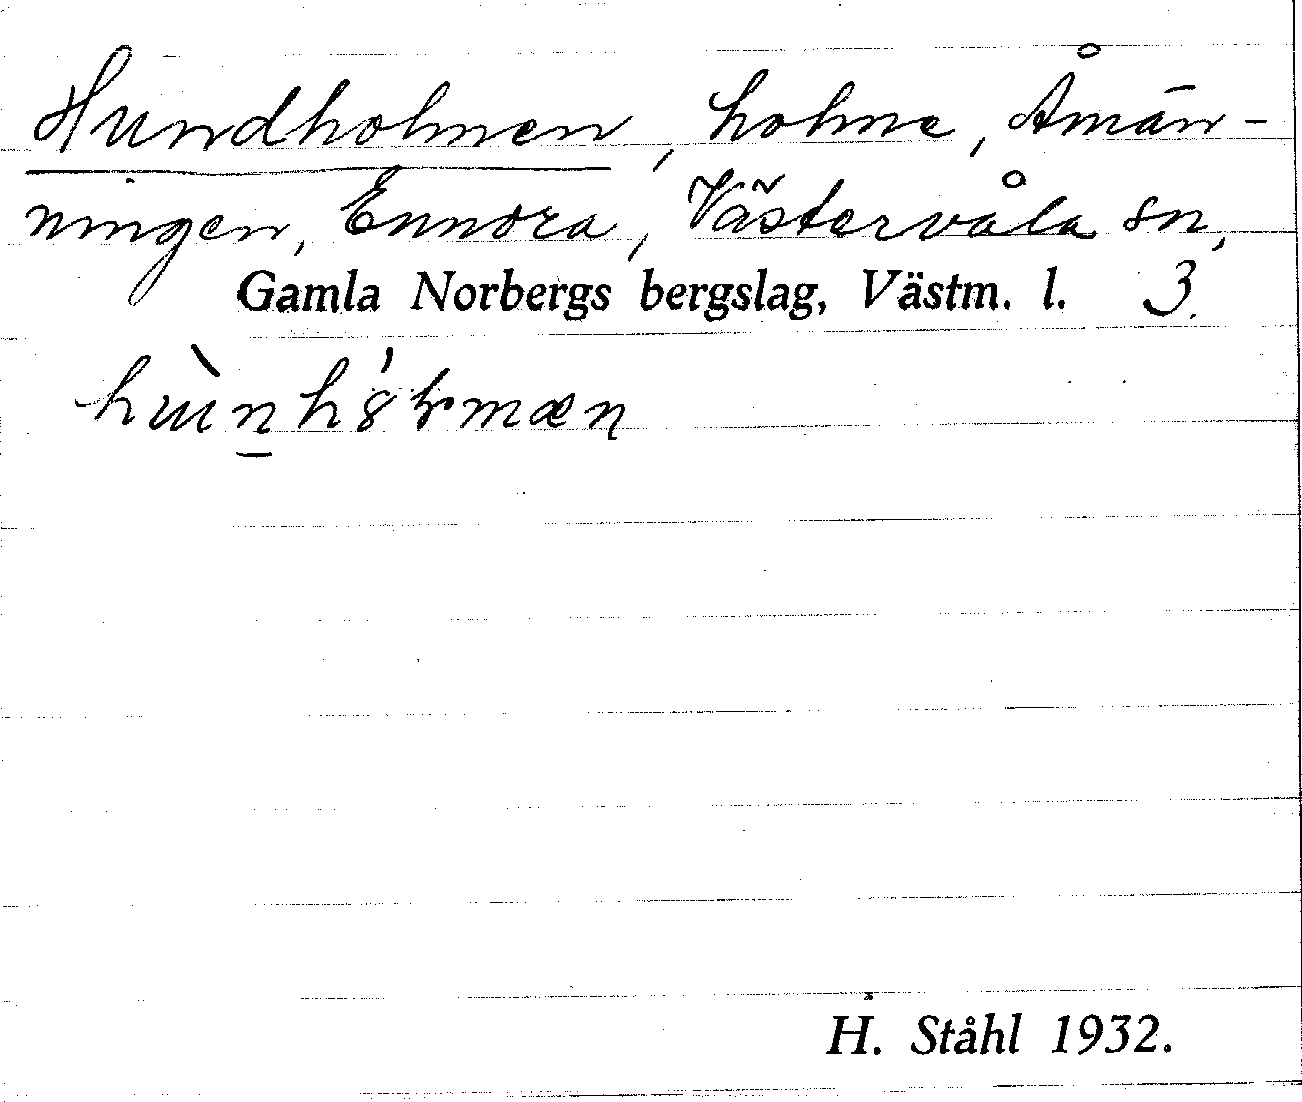 Hundholmen, holme, Åmän-
ningen, Ennora, Västervåla sn,
Gamla Norbergs bergslag, Västm. l. 3.
H. Ståhl 1932.